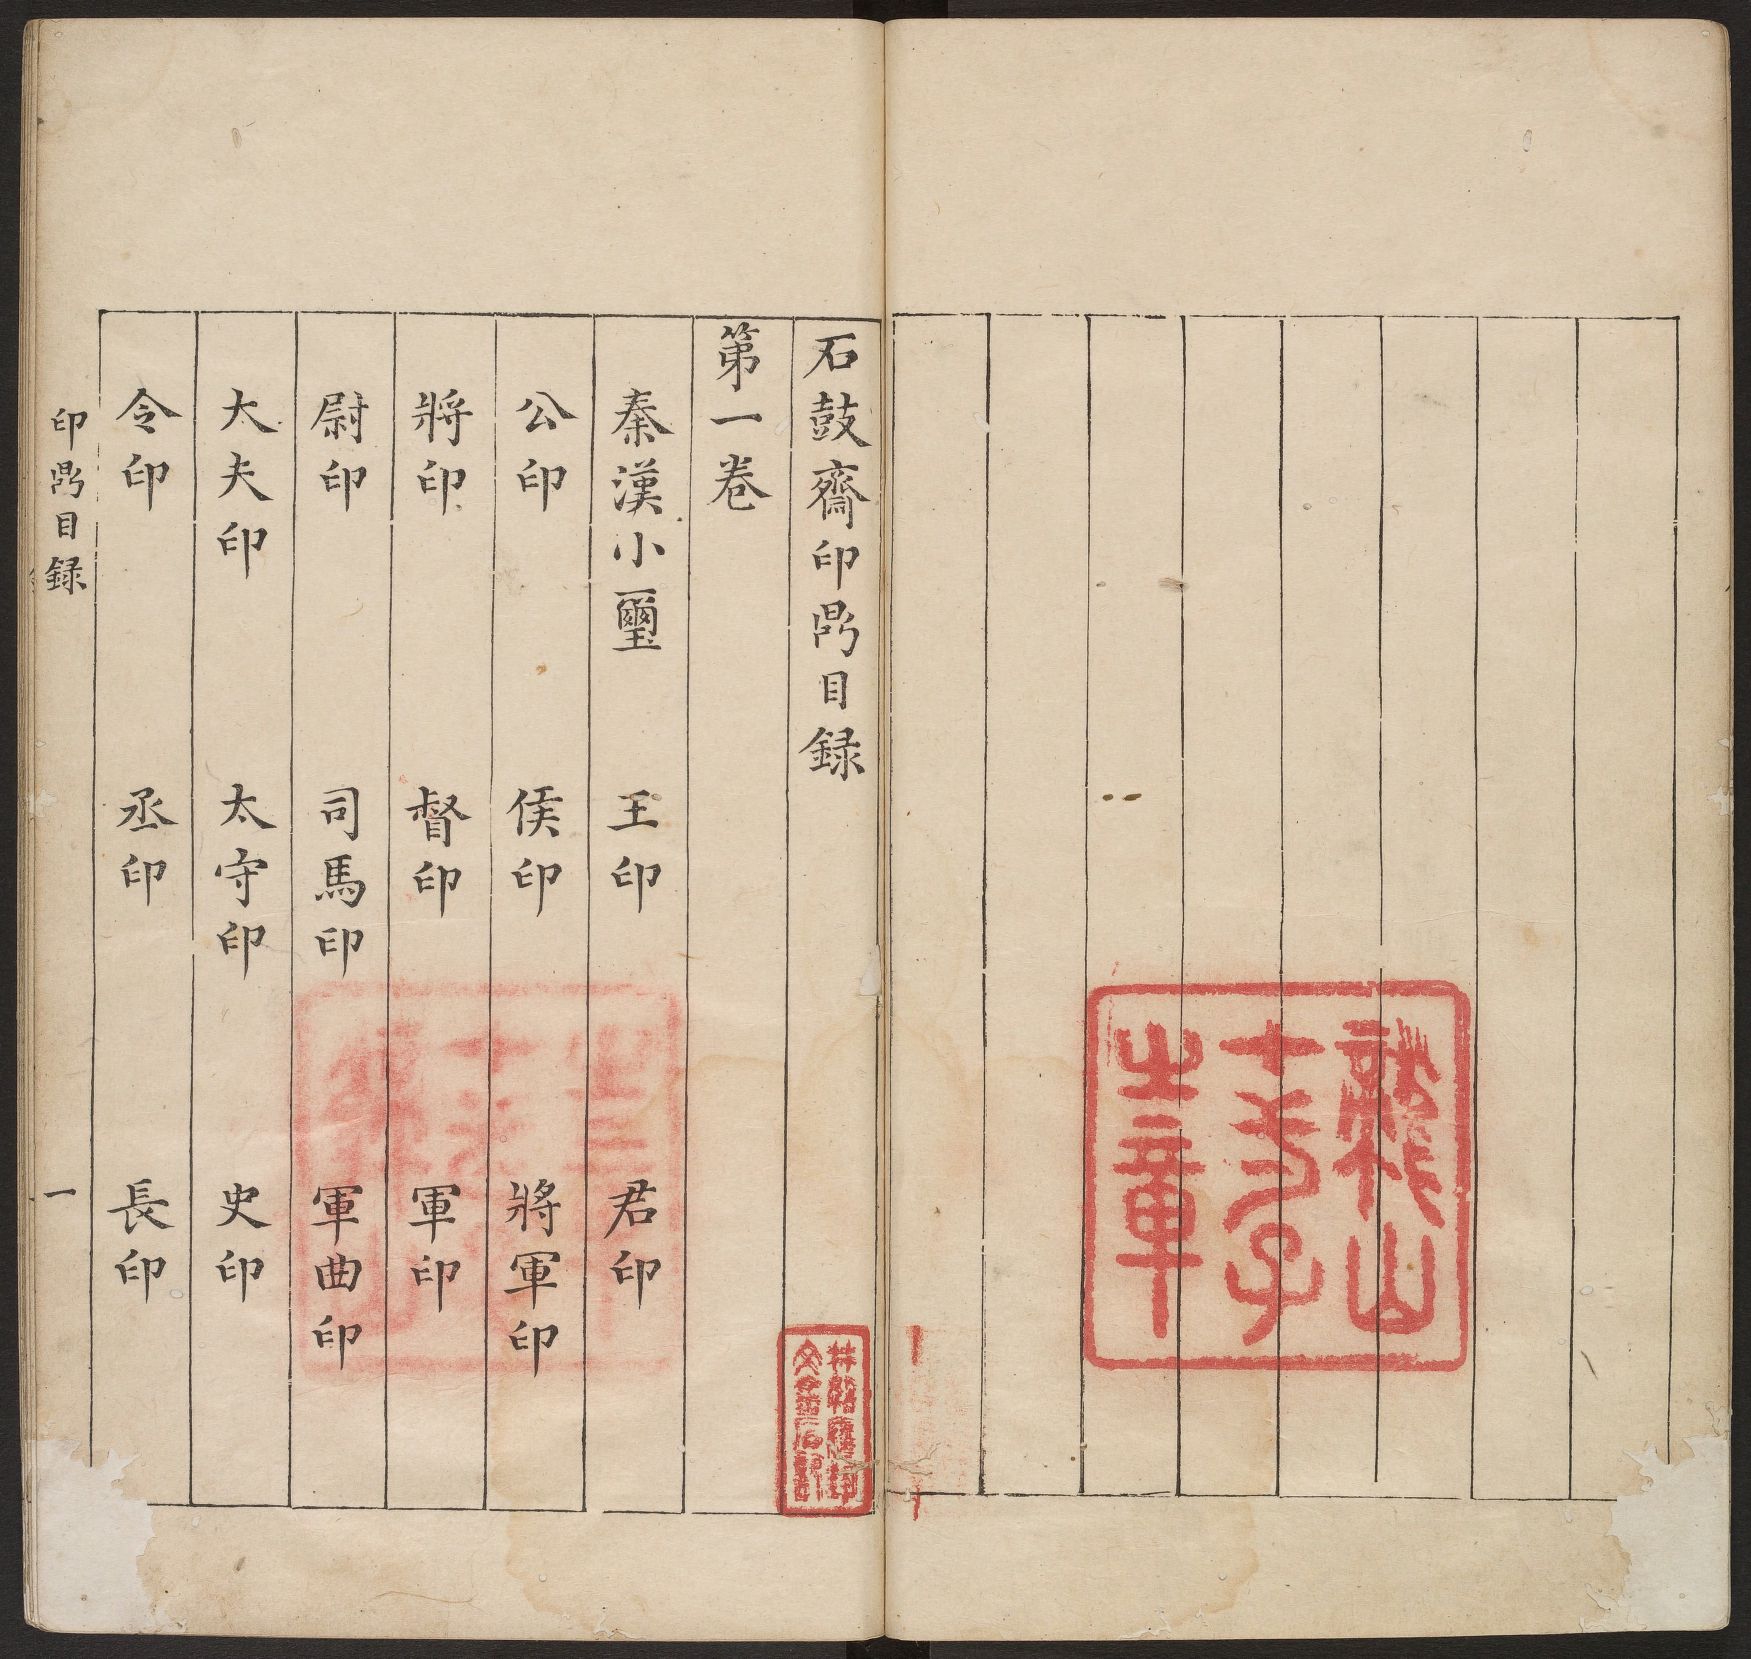 山
子
之章
石鼓齋印鼎目録
第一卷
秦漢小璽 王印 君印
公印 侯印 將軍印
將印 督印 軍印
尉印 司馬印 軍曲印
大夫印 太守印 史印
令印 丞印 長印
印鼎目録 一